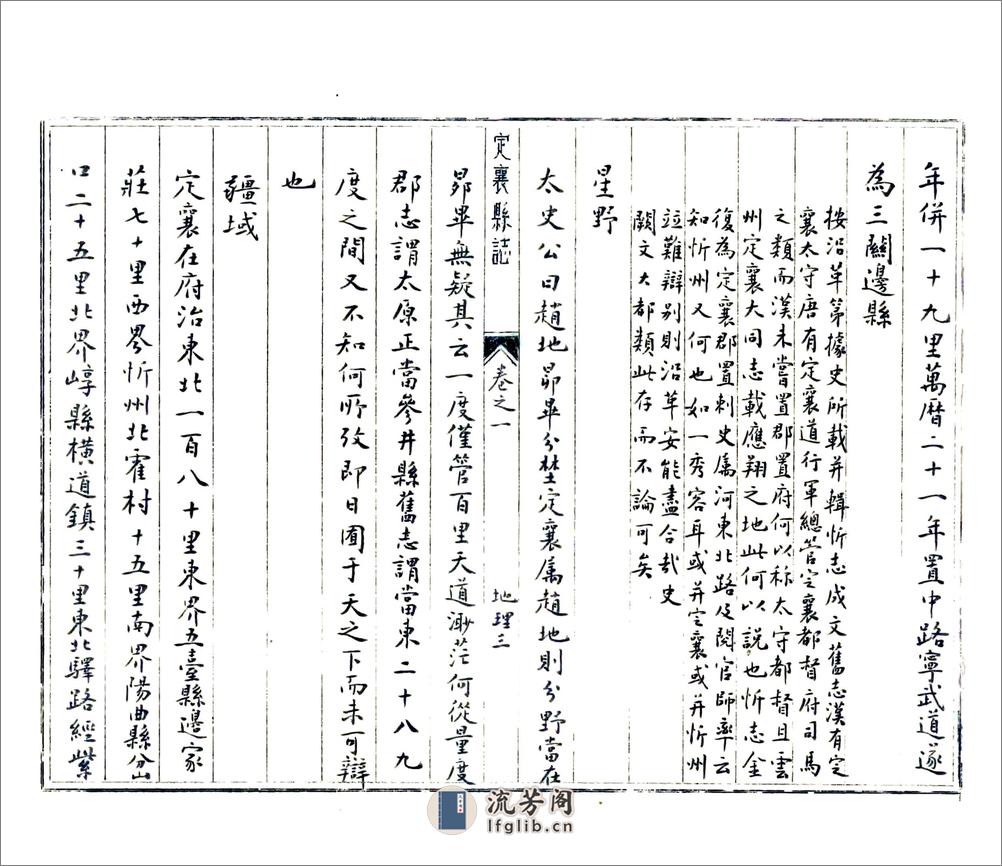 年併一十九里萬曆二十一年置中路寧武道遂
為三關邊縣
按沿革第據史所載并輯忻志成文舊志漢有定
襄太守唐有定襄道行軍總管定襄都督府司馬
之類而漢未嘗置郡置府何以称太守都督且雲
州定襄大同志載應翔之地此何以說也忻志金
復為定襄郡置刺史属河東北路及閱官師率云
知忻州又何也如一秀容耳或并定襄或并忻州
竝難辯别則沿革安能盡合哉史
闕文大都類此存而不論可矣
星野
太史公曰趙地昴畢分埜定襄属趙地則分野當在
定襄縣誌
卷之一
地理三
昴畢無疑其云一度僅管百里天道渺茫何從量度
郡志謂太原正當參井縣舊志謂當東二十八九
度之間又不知何所攷即日囿于天之下而未可辯
也
疆域
定襄在府治東北一百八十里東界五臺縣邊家
莊七十里西界忻州北霍村十五里南界陽曲縣分山
口二十五里北界崞縣横道鎮三十里東北驛路經紫
流芳阁
lfglib.cn